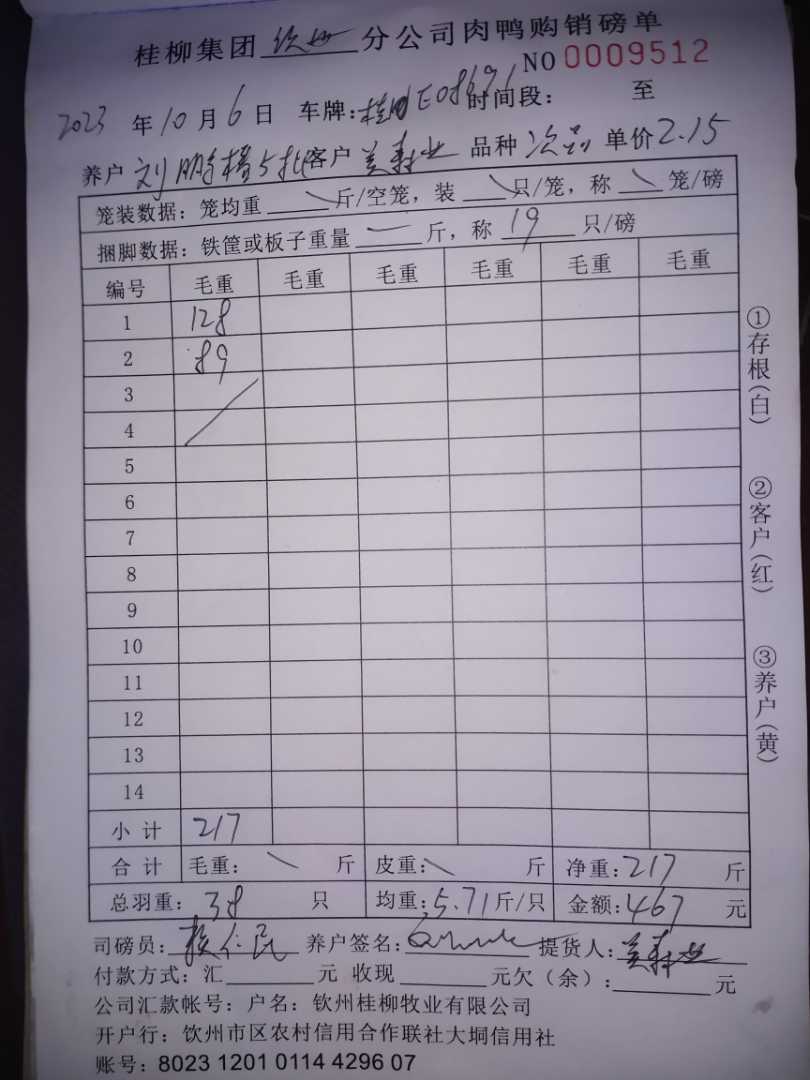 桂柳集团 钦州 分公司肉鸭购销磅单
NO 0009512
2023 年 10 月 6 日 车牌: 时间段: 至
养户 刘 5批 客户 品种 次品 单价 2.15
笼装数据: 笼均重 斤/空笼, 装 只/笼, 称 笼/磅
捆脚数据: 铁筐或板子重量 斤, 称 19 只/磅
编号 毛重 毛重 毛重 毛重 毛重 毛重
1 128
2 89
3
4
5
6
7
8
9
10
11
12
13
14
小 计 217
合 计 毛重: 斤 皮重: 斤 净重: 217 斤
总羽重: 38 只 均重: 5.71 斤/只 金额: 467 元
司磅员: 养户签名: 提货人:
付款方式: 汇 元 收现 元欠(余): 元
公司汇款帐号: 户名: 钦州桂柳牧业有限公司
开户行: 钦州市区农村信用合作联社大垌信用社
账号: 8023 1201 0114 4296 07
①存根(白)
②客户(红)
③养户(黄)